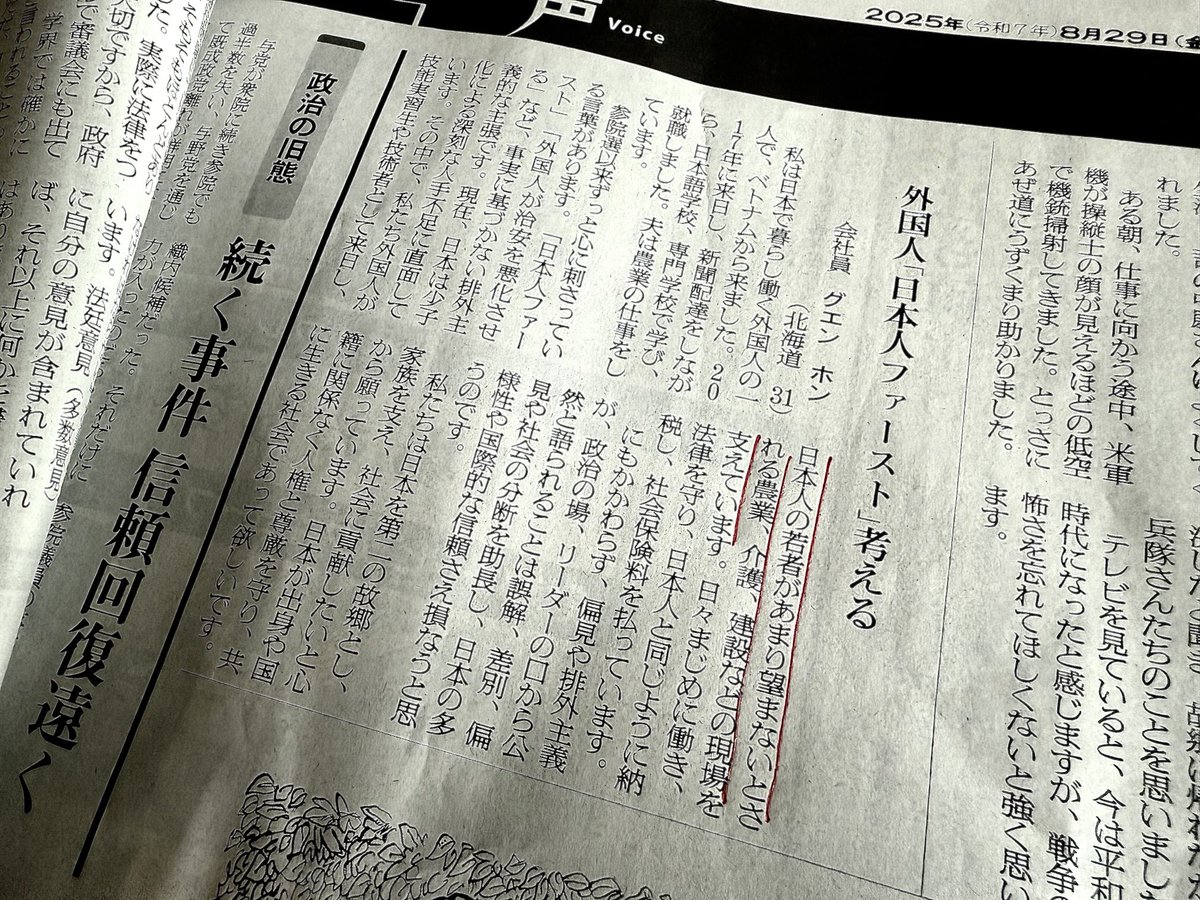 声 Voice
2025年(令和7年)8月29日(金
れました。
ある朝、仕事に向かう途中、米軍
機が操縦士の顔が見えるほどの低空
で機銃掃射してきました。とっさに
あぜ道にうずくまり助かりました。
兵隊さんたちのことを思いまし
テレビを見ていると、今は平和
時代になったと感じますが、戦争の
怖さを忘れてほしくないと強く思い
ます。
外国人「日本人ファースト」考える
会社員 グエン ホン
(北海道 31)
私は日本で暮らし働く外国人の一
人で、ベトナムから来ました。20
17年に来日し、新聞配達をしなが
ら、日本語学校、専門学校で学び、
就職しました。夫は農業の仕事をし
ています。
参院選以来ずっと心に刺さってい
る言葉があります。「日本人ファー
スト」「外国人が治安を悪化させ
る」など、事実に基づかない排外主
義的な主張です。現在、日本は少子
化による深刻な人手不足に直面して
います。その中で、私たち外国人が
技能実習生や技術者として来日し、
日本人の若者があまり望まないとさ
れる農業、介護、建設などの現場を
支えています。日々まじめに働き、
法律を守り、日本人と同じように納
税し、社会保険料を払っています。
にもかかわらず、偏見や排外主義
が、政治の場、リーダーの口から公
然と語られることは誤解、差別、偏
見や社会の分断を助長し、日本の多
様性や国際的な信頼さえ損なうと思
うのです。
私たちは日本を第二の故郷とし、
家族を支え、社会に貢献したいと心
から願っています。日本が出身や国
籍に関係なく人権と尊厳を守り、共
に生きる社会であって欲しいです。
政治の旧態
続く事件 信頼回復遠く
与党が衆院に続き参院でも
過半数を失い、与野党を通じ
て既成政党離れが
た。実際に法律をつ
大切ですから、政府
で審議会にも出て
学界では確かに
います。法廷意見(多数意見)
に自分の意見が含まれていれ
ば、それ以上に何かを